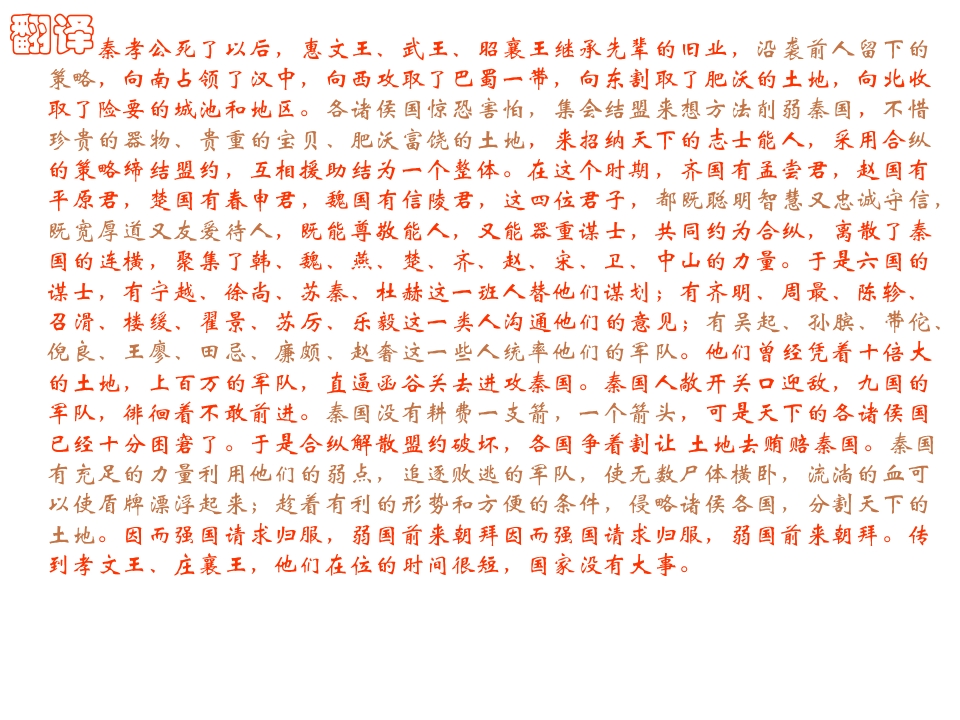 翻译
秦孝公死了以后，惠文王、武王、昭襄王继承先辈的旧业，沿袭前人留下的
策略，向南占领了汉中，向西攻取了巴蜀一带，向东割取了肥沃的土地，向北收
取了险要的城池和地区。各诸侯国惊恐害怕，集会结盟来想方法削弱秦国，不惜
珍贵的器物、贵重的宝贝、肥沃富饶的土地，来招纳天下的志士能人，采用合纵
的策略缔结盟约，互相援助结为一个整体。在这个时期，齐国有孟尝君，赵国有
平原君，楚国有春申君，魏国有信陵君，这四位君子，都既聪明智慧又忠诚守信，
既宽厚道又友爱待人，既能尊敬能人，又能器重谋士，共同约为合纵，离散了秦
国的连横，聚集了韩、魏、燕、楚、齐、赵、宋、卫、中山的力量。于是六国的
谋士，有宁越、徐尚、苏秦、杜赫这一班人替他们谋划；有齐明、周最、陈轸、
召滑、楼缓、翟景、苏厉、乐毅这一类人沟通他们的意见；有吴起、孙膑、带佗、
倪良、王廖、田忌、廉颇、赵奢这一些人统率他们的军队。他们曾经凭着十倍大
的土地，上百万的军队，直逼函谷关去进攻秦国。秦国人敞开关口迎敌，九国的
军队，徘徊着不敢前进。秦国没有耕费一支箭，一个箭头，可是天下的各诸侯国
已经十分困窘了。于是合纵解散盟约破坏，各国争着割让 土地去贿赔秦国。秦国
有充足的力量利用他们的弱点，追逐败逃的军队，使无数尸体横卧，流淌的血可
以使盾牌漂浮起来；趁着有利的形势和方便的条件，侵略诸侯各国，分割天下的
土地。因而强国请求归服，弱国前来朝拜因而强国请求归服，弱国前来朝拜。传
到孝文王、庄襄王，他们在位的时间很短，国家没有大事。